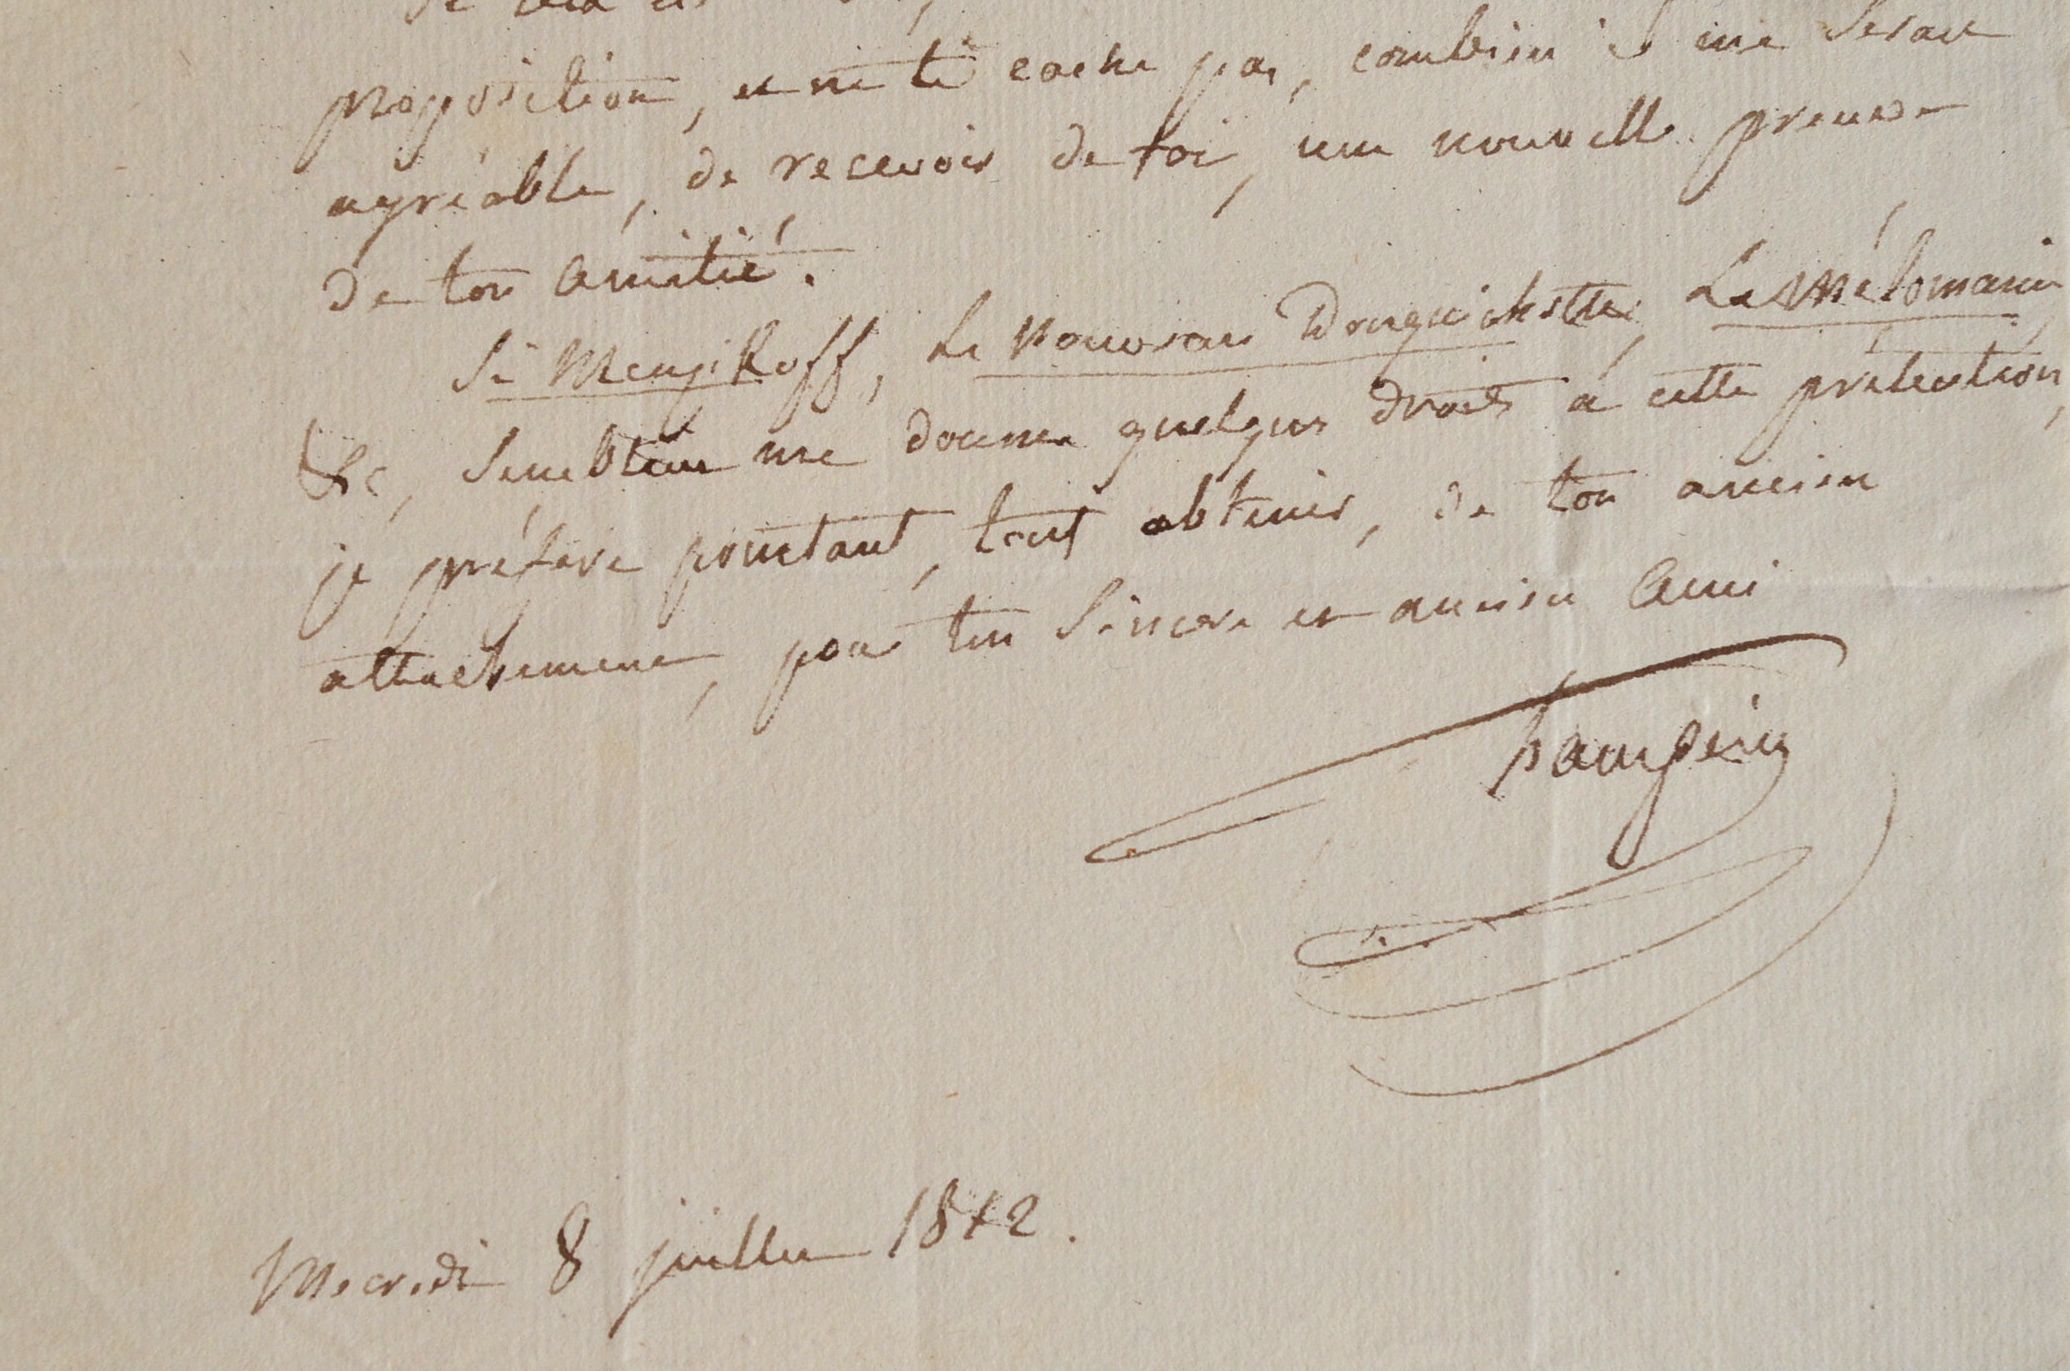 proposition, et ne te cache pas, combien il me serait
agréable, de recevoir de toi, une nouvelle preuve
de ton amitié.
Si Menzikoff, Le Nouveau Donquichotte, Le Mélomanie,
&c, semblent me donner quelques droits à cette prétention,
je préfere pourtant, tout obtenir, de ton ancien
attachement, pour ton sincere et ancien ami
Champein
Mecredi 8 juillet 1812.